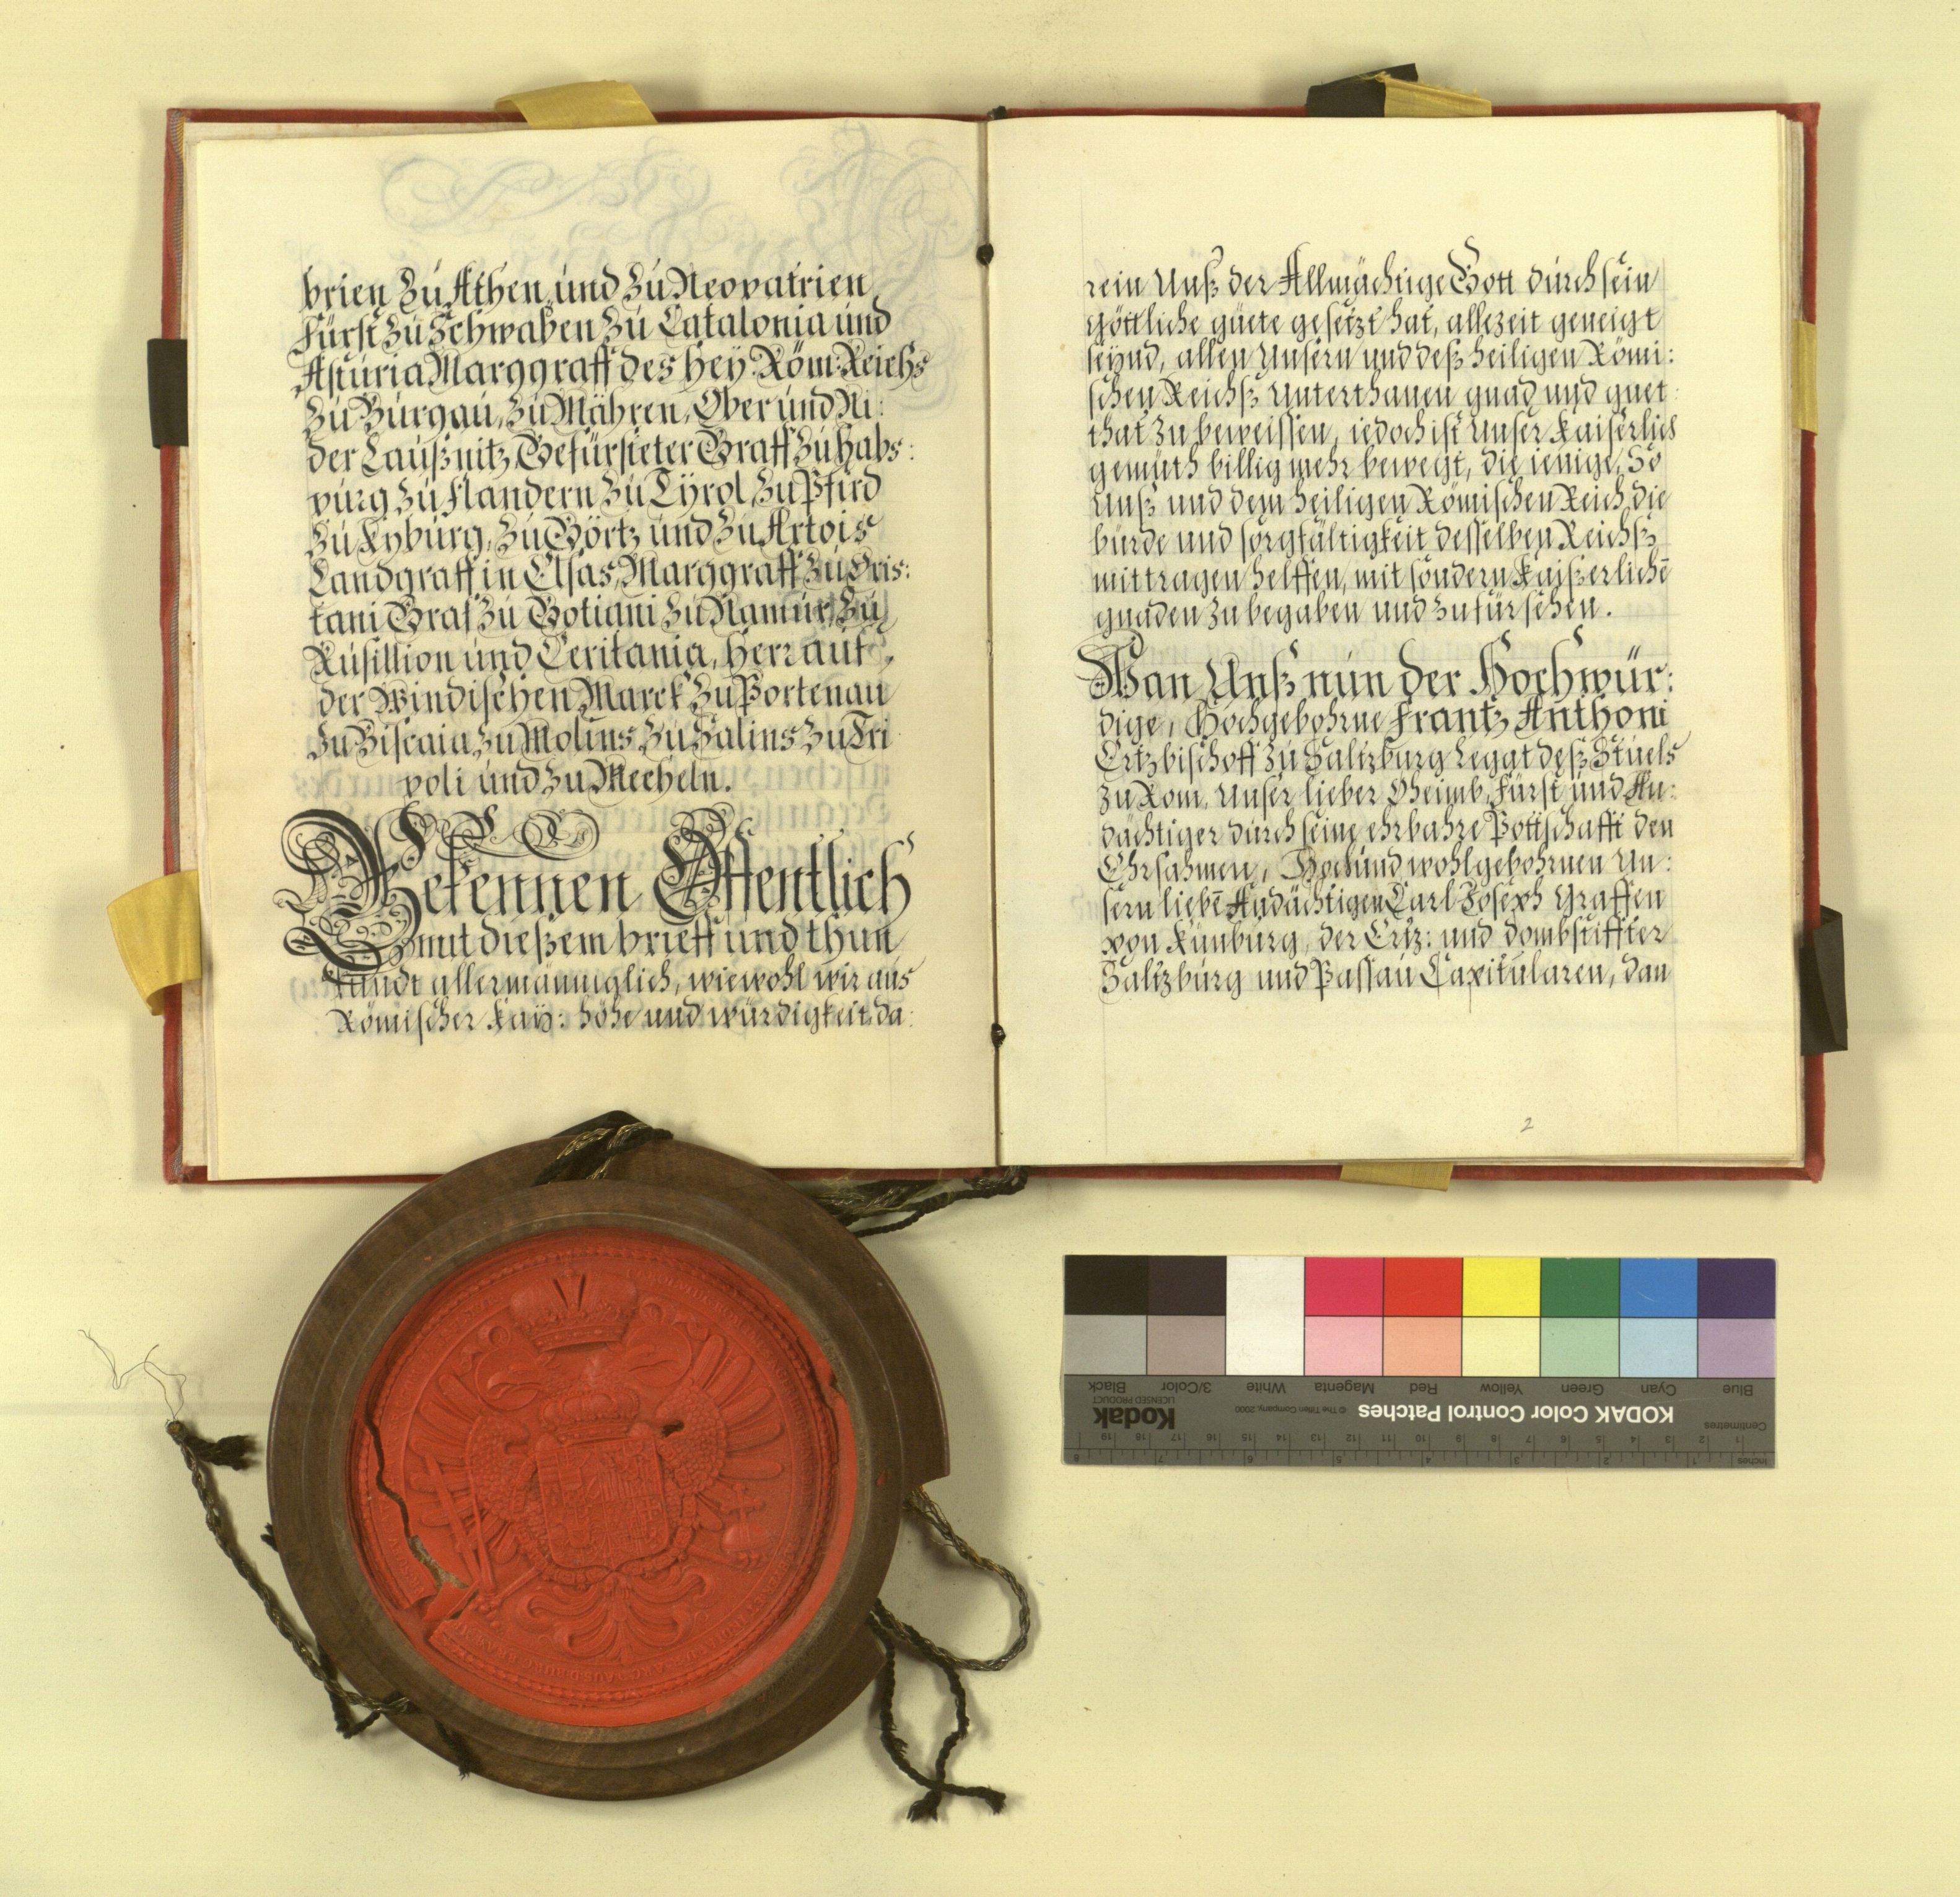 brien Zu Athen, und Zu Neopatrien
Fürst Zu Schwaben Zu Catalonia und
Asturia Marggraff des Hey: Röm: Reichs
Zu Burgau, Zu Mähren, Ober und Ni:
der Laußnitz, Gefürsteter Graff Zu Habs:
purg Zu Flandern Zu Tÿrol, Zu Pfird
Zu Kyburg, Zu Görtz und Zu Artois
Landgraff in Elsas, Marggraff Zu Oris:
tani Graf Zu Gotiani Zu Namur, Zu
Rusillion und Ceritania, Herr auf
der Windischen Marck Zu Portenau
Zu Biscaia, Zu Molins, Zu Salins Zu Tri
poli und Zu Mecheln.
Bekennen Öffentlich
mit dießem brieff und thun
kundt allermänniglich, wiewohl wir aus
Römischer Kaÿ: höhe und würdigkeit, da:
rein Unß der Allmächtige Gott durch sein
göttliche güete gesetzt hat, allezeit geneigt
seynd, allen Unsern und deß heiligen Römi:
schen Reichß Unterthanen gnad und guet:
that Zu beweissen, iedoch ist Unser Kaiserlich
gemüth billig mehr bewegt, die ienige, So
Unß und dem heiligen Römischen Reich die
bürde und sorgfältigkeit desselben Reichß
mittragen helffen, mit sondern Kaißerlichē
gnaden Zu begaben und Zu fürsehen.
Wan Unß nun der Hochwür:
dige, Hochgebohrne Frantz Anthoni
Ertzbischoff Zu Saltzburg Legat deß Stuels
Zu Rom, Unser lieber Oheimb, Fürst und An:
dächtiger durch seine ehrbahre Pottschafft den
Ehrsahmen, Hoch und wohlgebohrnen Un:
sern liebē Andächtigen Carl Joseph Graffen
von Künburg, der Ertz: und dombstiffter
Saltzburg und Passau Capitularen, dan
2
KODAK Color Control Patches
Kodak
LICENSED PRODUCT
© The Tiffen Company, 2000
Blue Cyan Green Yellow Red Magenta White 3/Color Black
Centimetres 1 2 3 4 5 6 7 8 9 10 11 12 13 14 15 16 17 18 19
Inches 1 2 3 4 5 6 7 8